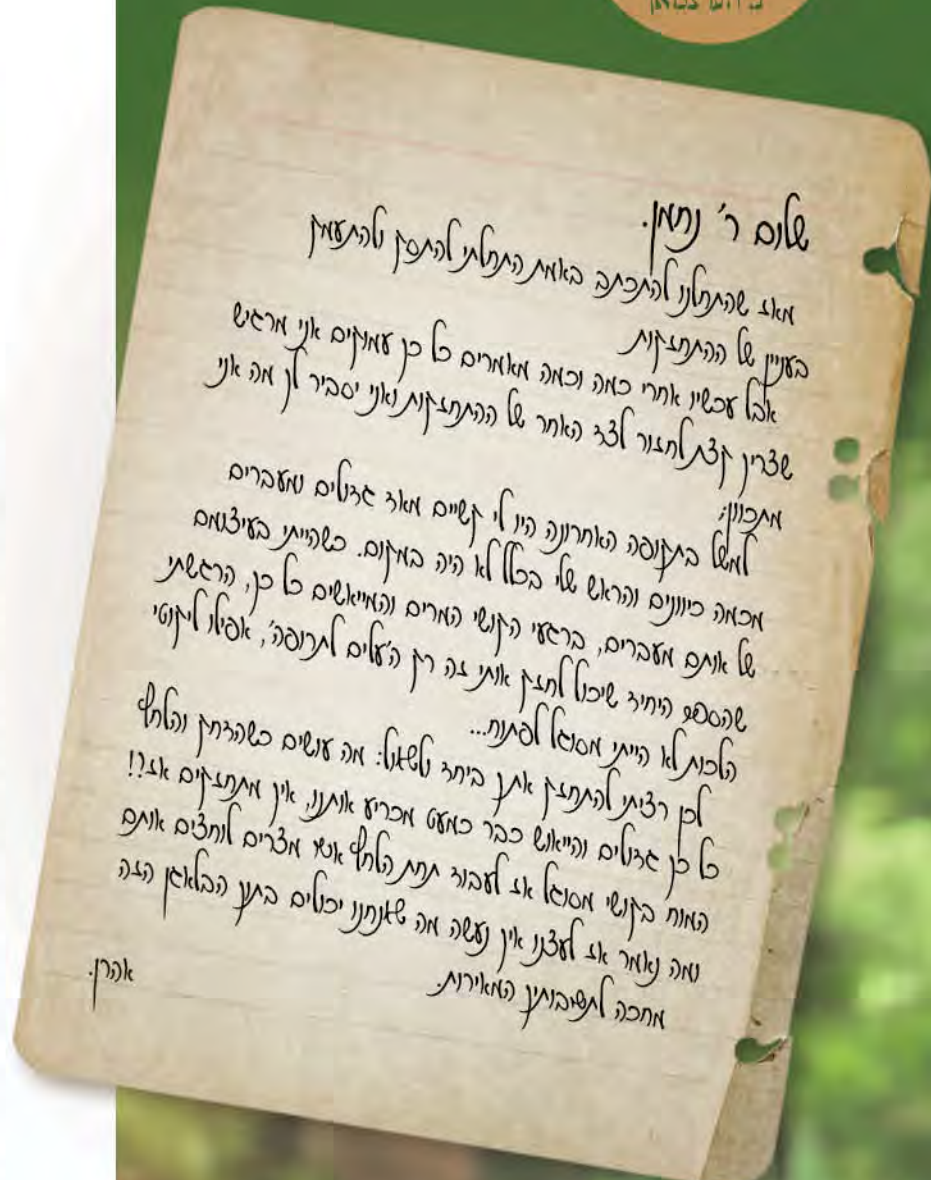 שלום ר' נחמן.
מאז שהתחלנו להתכתב באמת התחלתי להתסק ולהתעמק
בעניין של ההתחזקות
אבל עכשיו אחרי כמה וכמה מאמרים כל כך עמוקים אני מרגיש
שצריך קצת לחזור לצד האחר של ההתחזקות ואני יסביר לך מה אני
מתכוון;
למשל בתקופה האחרונה היו לי קשיים מאד גדולים ומעברים
מכמה כיוונים והראש שלי בכלל לא היה במקום. כשהייתי בעיצומם
של אותם מעברים, ברגעי הקושי המרים והמייאשים כל כך, הרגשתי
שהספר היחיד שיכול לחזק אותי זה רק ה'עלים לתרופה', אפילו ליקוטי
הלכות לא הייתי מסוגל לפתוח...
לכן רציתי להתחזק אתך ביחד ולשאול: מה עושים כשהדחק והלחץ
כל כך גדולים והייאוש כבר כמעט מכריע אותנו, איך מתחזקים אז?!
המוח בקושי מסוגל אז לעבוד תחת הלחץ אשר מצרים לוחצים אותם
ומה נאמר אז לעצנו איך נעשה מה שאנחנו יכולים בתוך הבלאגן הזה
מחכה לתשיבותיך המאירות.
אהרן.